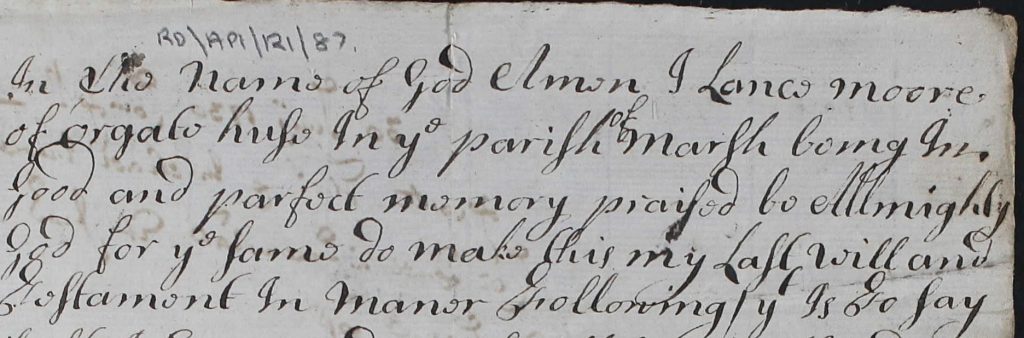 RD\AP1/121/87.
In The Name of God Amen I Lance moore
of orgate huse In ye parish of Marsh being In
good and parfect memory praised be Allmighty
God for ye same do make this my Last will and
Testament In Maner Following yt Is To say